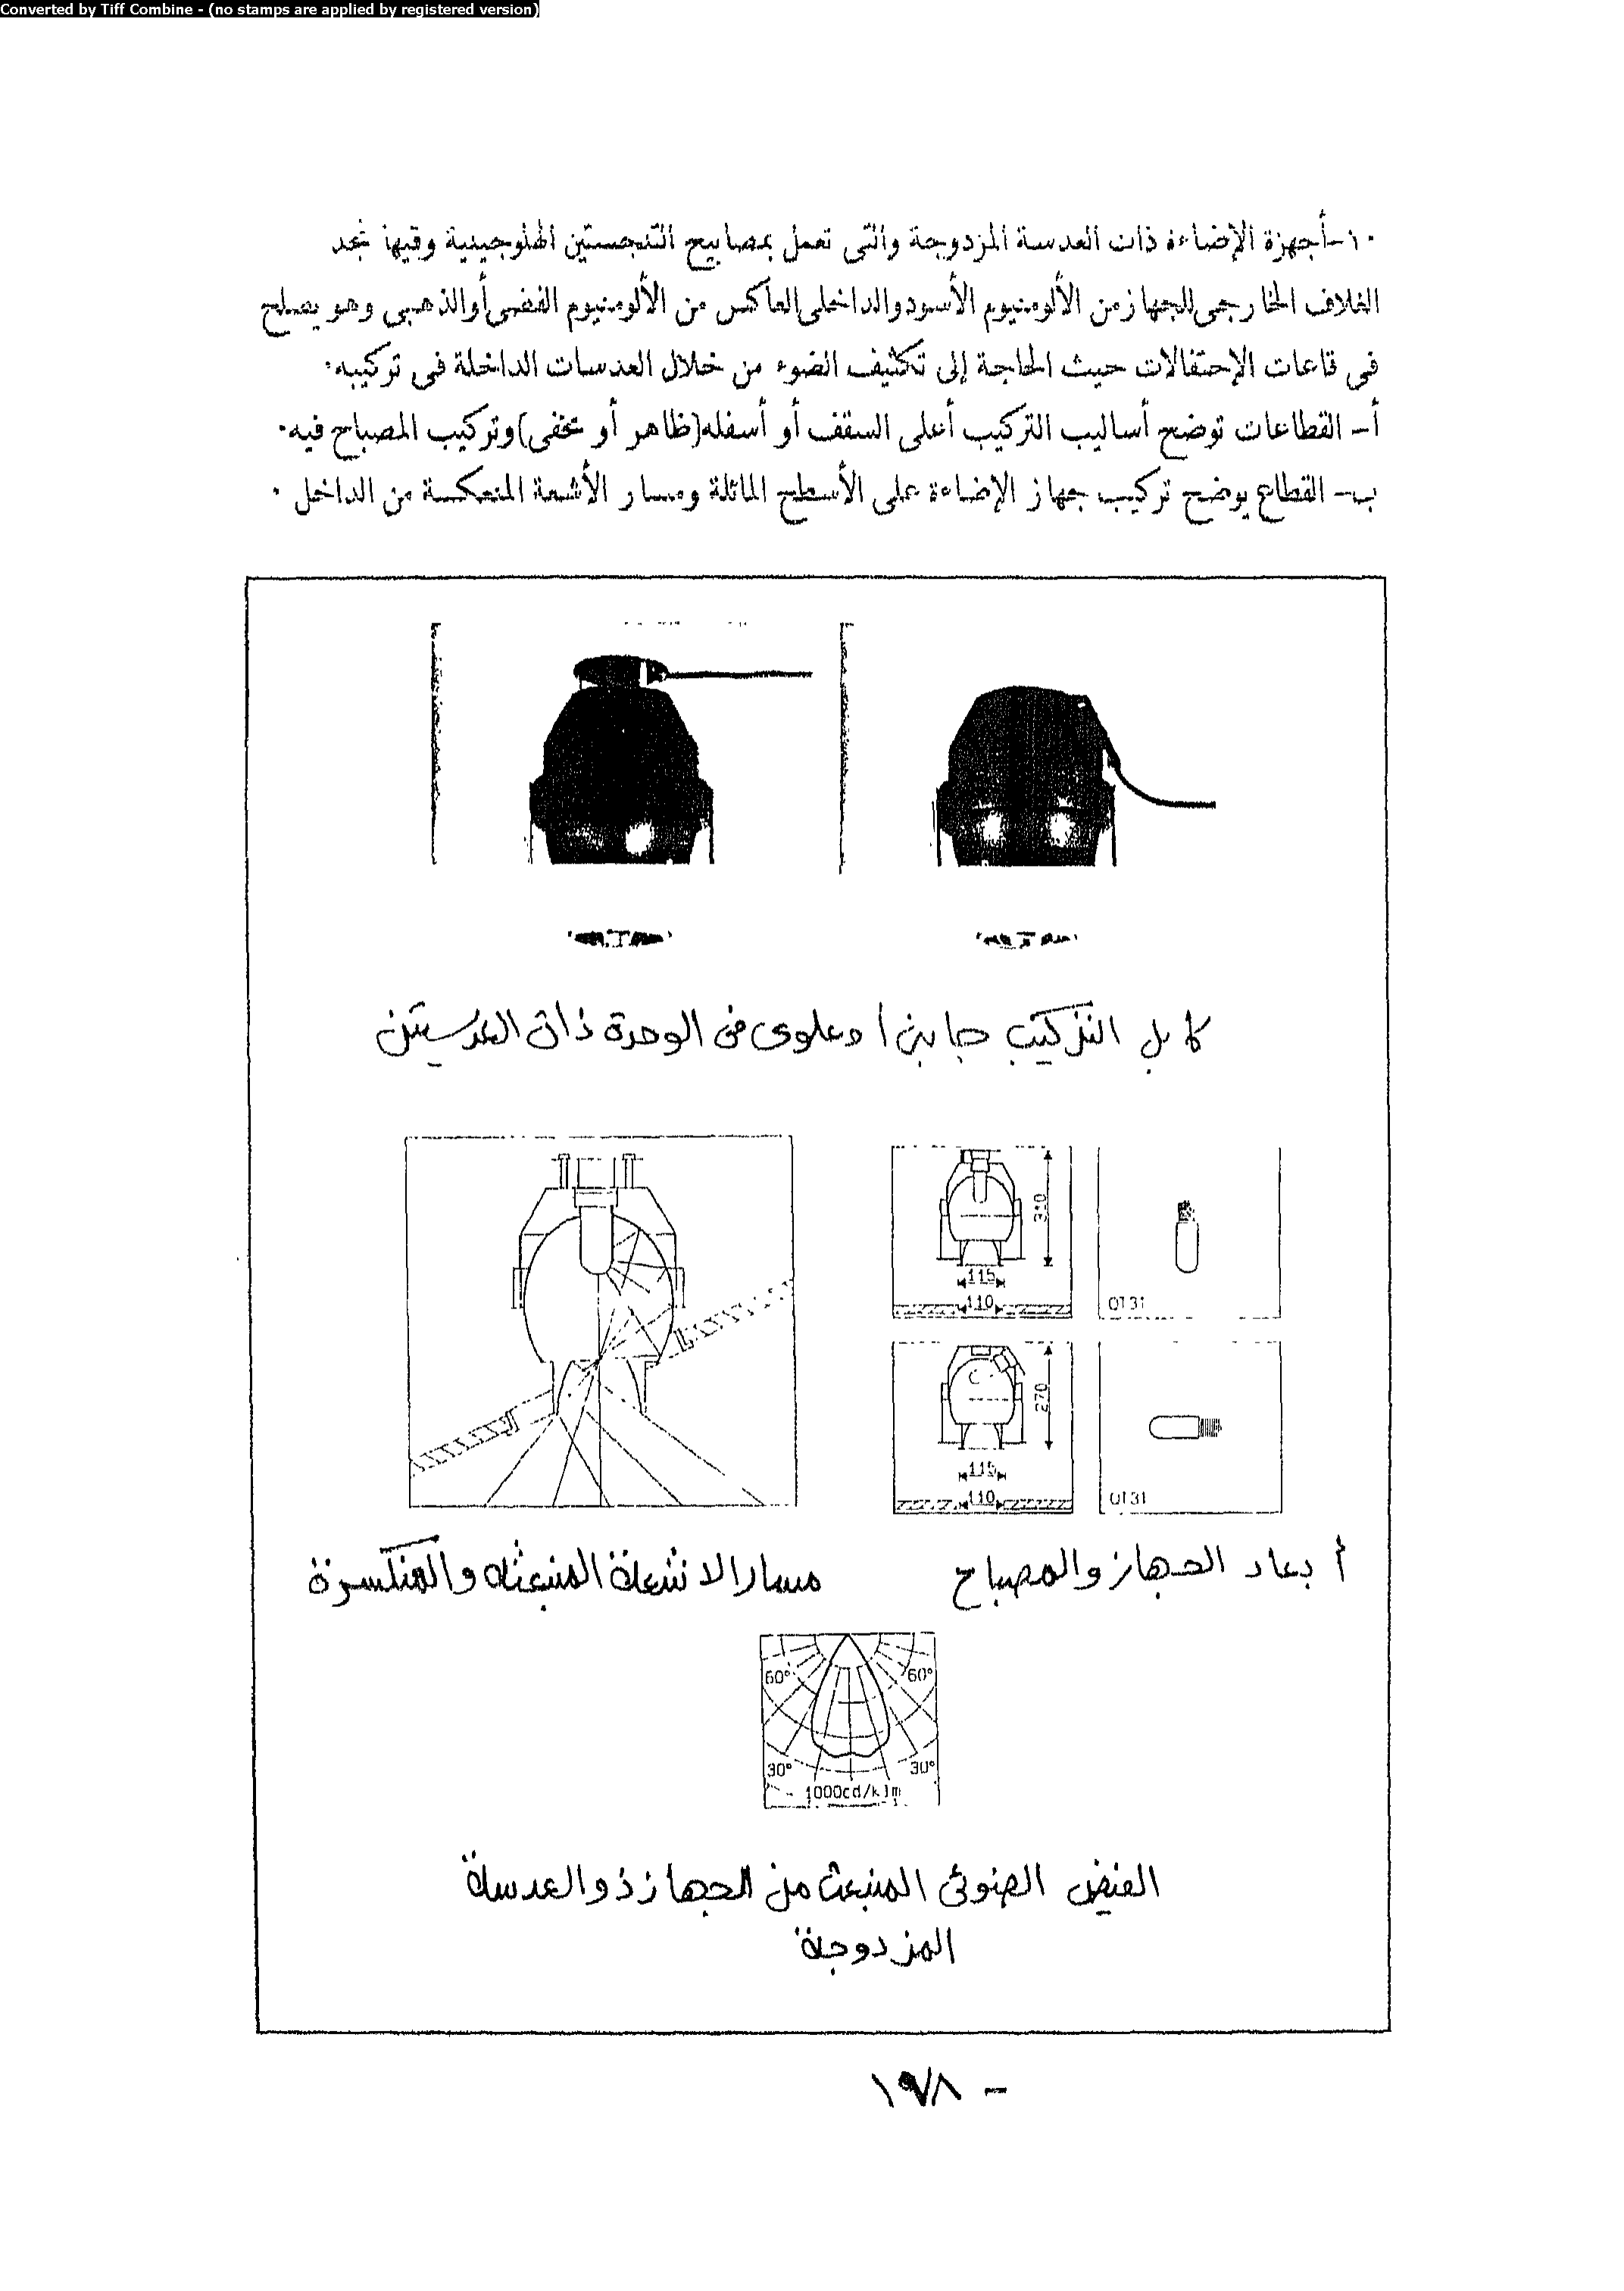 Converted by Tiff Combine - (no stamps are applied by registered version)
١٠-أجهزة الإضاءة ذات العدسة المزدوجة والتى تعمل بمصابيح التنجستين الهلوجينية وفيها نجد
الغلاف الخارجى للجهاز من الألومنيوم الأسود والداخلى العاكس من الألومنيوم الفضى أو الذهبى وهو يصلح
فى قاعات الإحتفالات حيث الحاجة إلى تكثيف الضوء من خلال العدسات الداخلة فى تركيبه.
أ- القطاعات توضح أساليب التركيب أعلى السقف أو أسفله(ظاهر أو مخفى)وتركيب المصباح فيه.
ب- القطاع يوضح تركيب جهاز الإضاءة على الأسطح المائلة ومسار الأشعة المنعكسة من الداخل .
التركيب أو علوى فى الوحدة ذات العدستين
310
115
110
QT31
270
115
110
QT31
أبعاد الجهاز والمصباح
مسار الاشعة المنبعثه والمنكسرة
60° 60°
30° 30°
1000cd/klm
الفيض الضوئى المنبعث من الجهاز ذو العدسة
المزدوجة